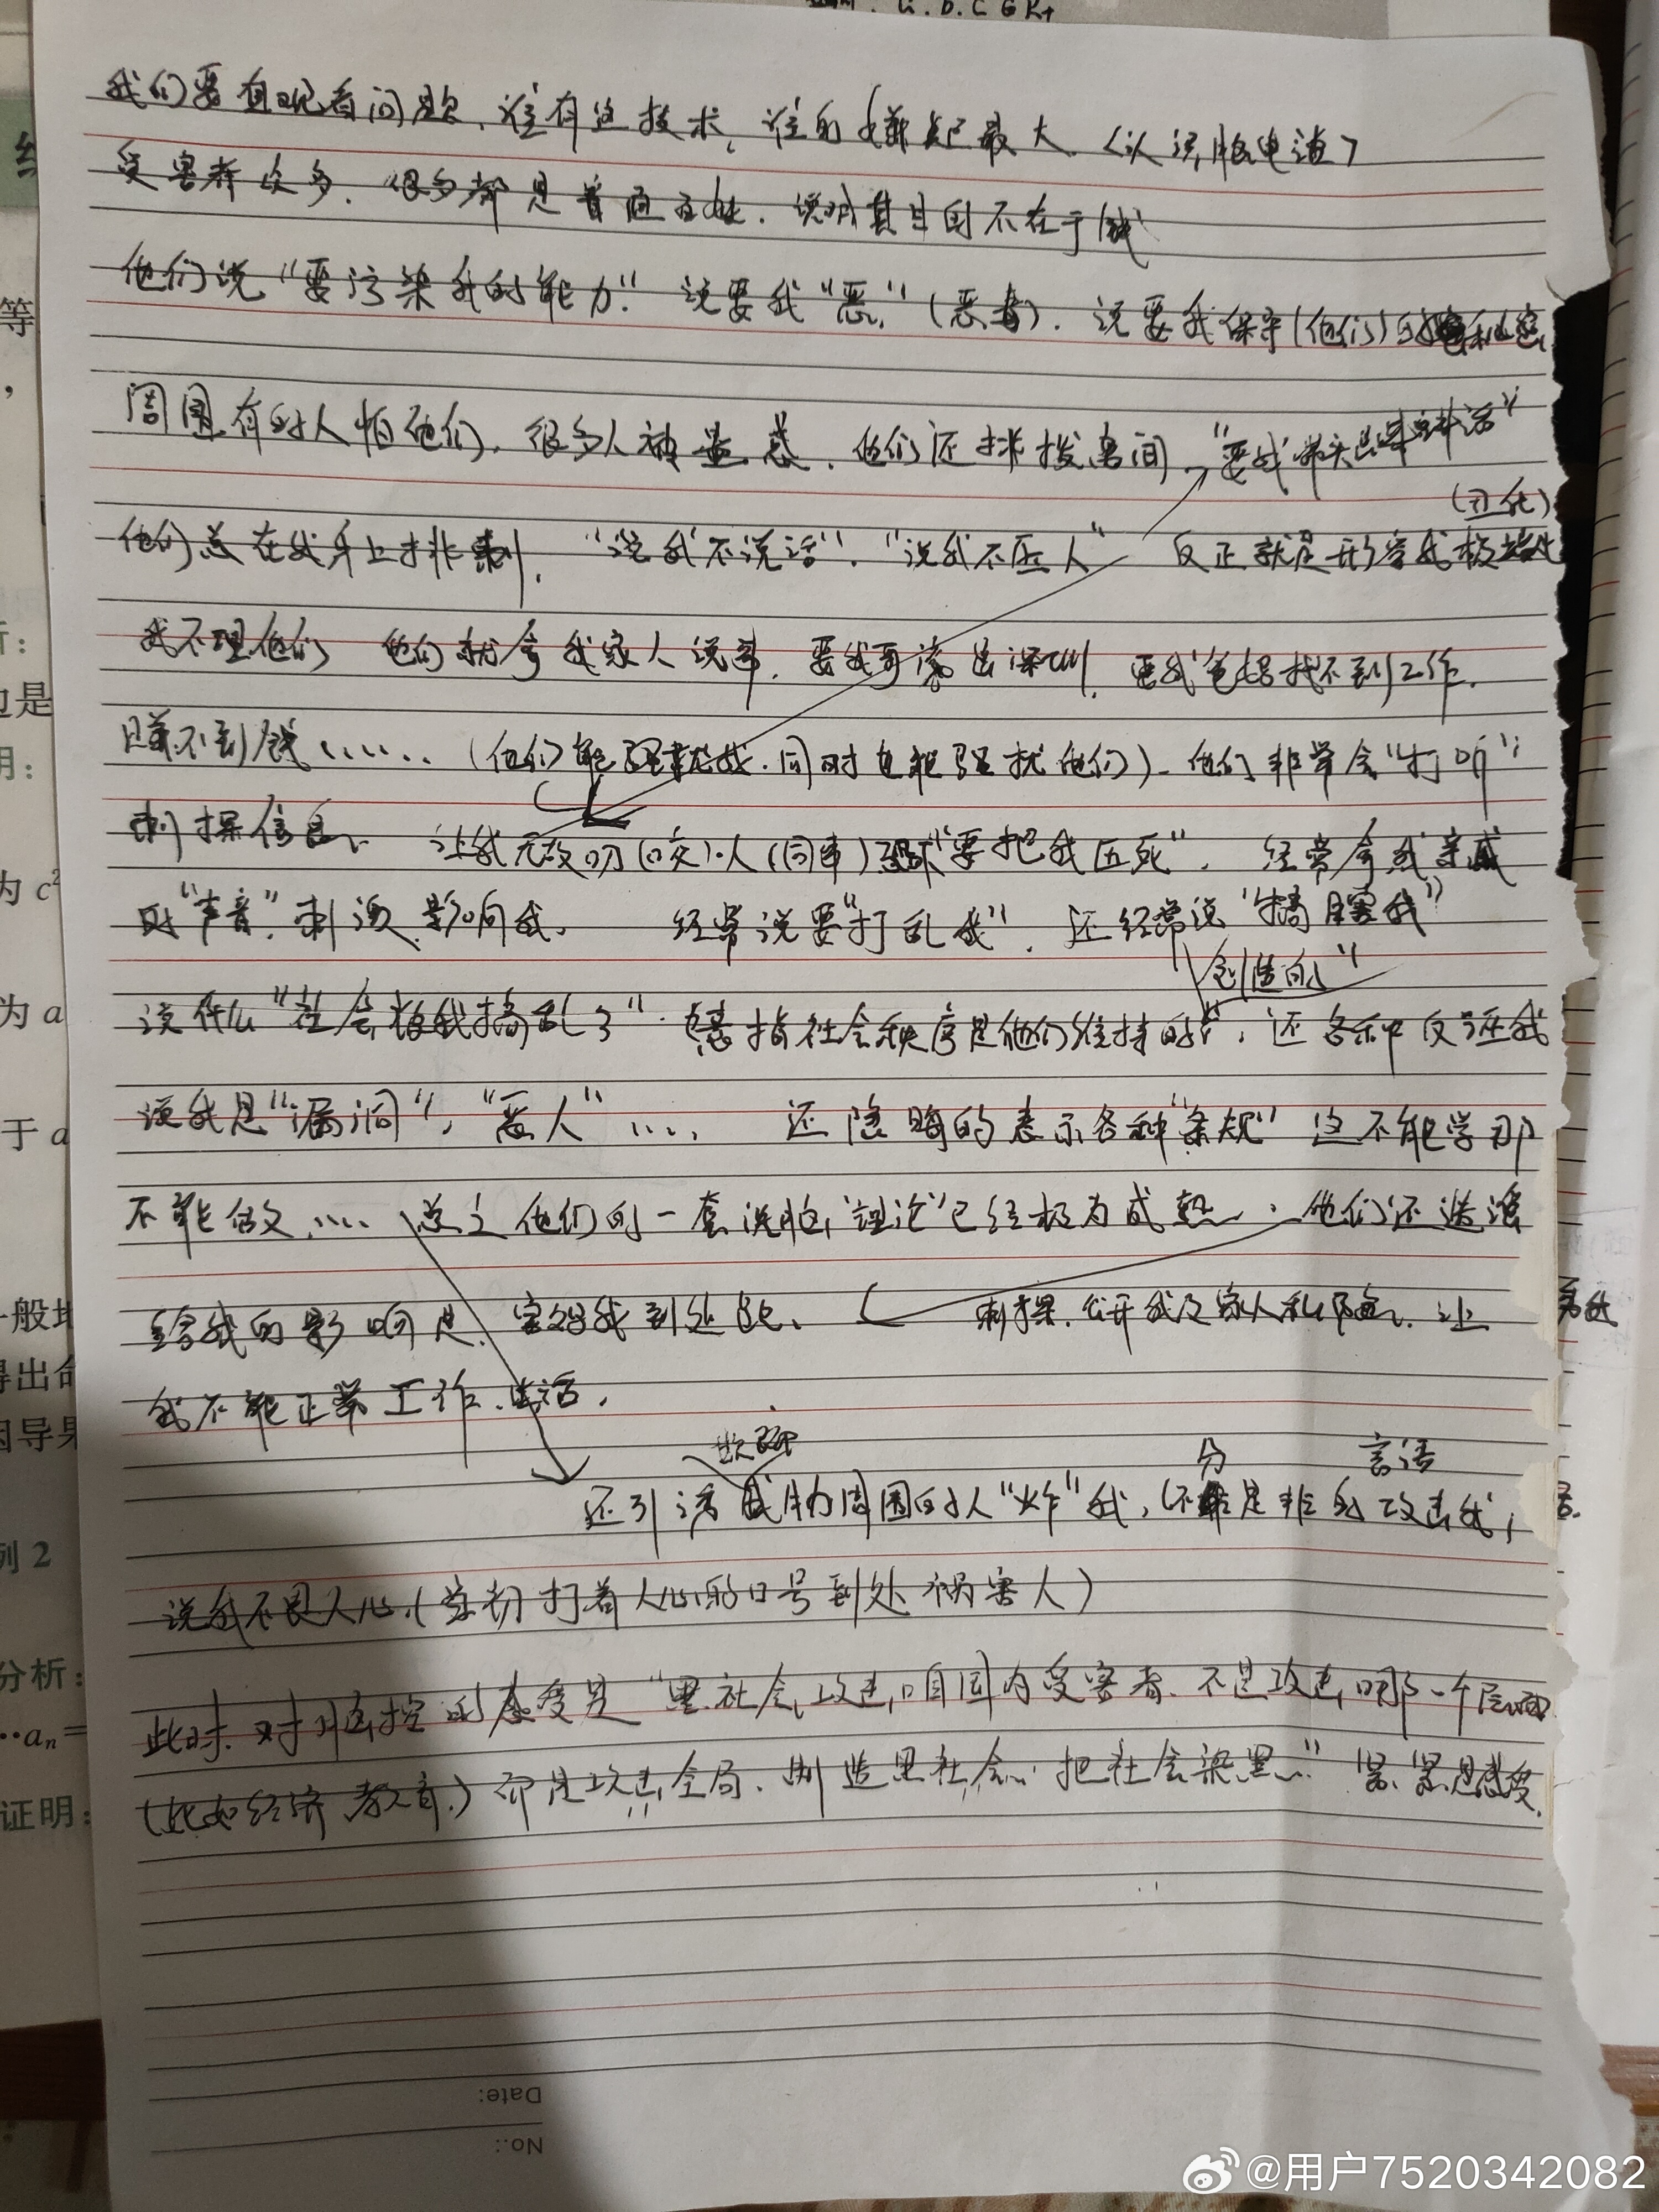 我们要直观看问题、谁有这技术、谁的嫌疑最大.
受害者众多.很多都是普通百姓.说明其目的不在于钱
他们说“要污染我的能力”.说要我“恶”(恶毒).说要我保守(他们)的秘密
周围有的人怕他们.很多人被蛊惑.他们还挑拨离间
他们总在我身上挑刺.“说我不说话”.“说我不压人” 反正就是形容我极端化
我不理他们 他们就拿我家人说事.要我哥滚出深圳.要我爸妈找不到工作.
赚不到钱……(他们能骚扰我.同时也能骚扰他们).他们非常会“打听”
刺探信息、让我无故叨(咬)人(同事)“要把我压死”.经常拿我亲戚
的“声音”刺激、影响我.经常说要“打乱我”.还经常说“搞瞎我”
创造的
说什么“社会被我搞乱了”.意指社会秩序是他们维持的”,还各种反诬我
说我是“漏洞”,“恶人”….还隐晦的表示各种“条规”这不能学那
不能做….总之他们的一套洗脑“理论”已经极为成熟.他们还
给我的影响是.害得我到处跑、刺探.公开我及家人私隐.让
我不能正常工作.生活.
分 言语
还引诱 周围的人“炸”我,(不分是非的攻击我,
说我不良人心.(学初打着人心的口号到处祸害人)
此时.对脑控的态度是“黑社会攻击咱国内受害者.不是攻击哪一个层面
(比如经济 教育.)而是攻击全局.制造黑社会.把社会染黑.”
Date:
No.:
等
也是
为 c²
为 a
于 a
例 2
分析:
证明:
@用户7520342082